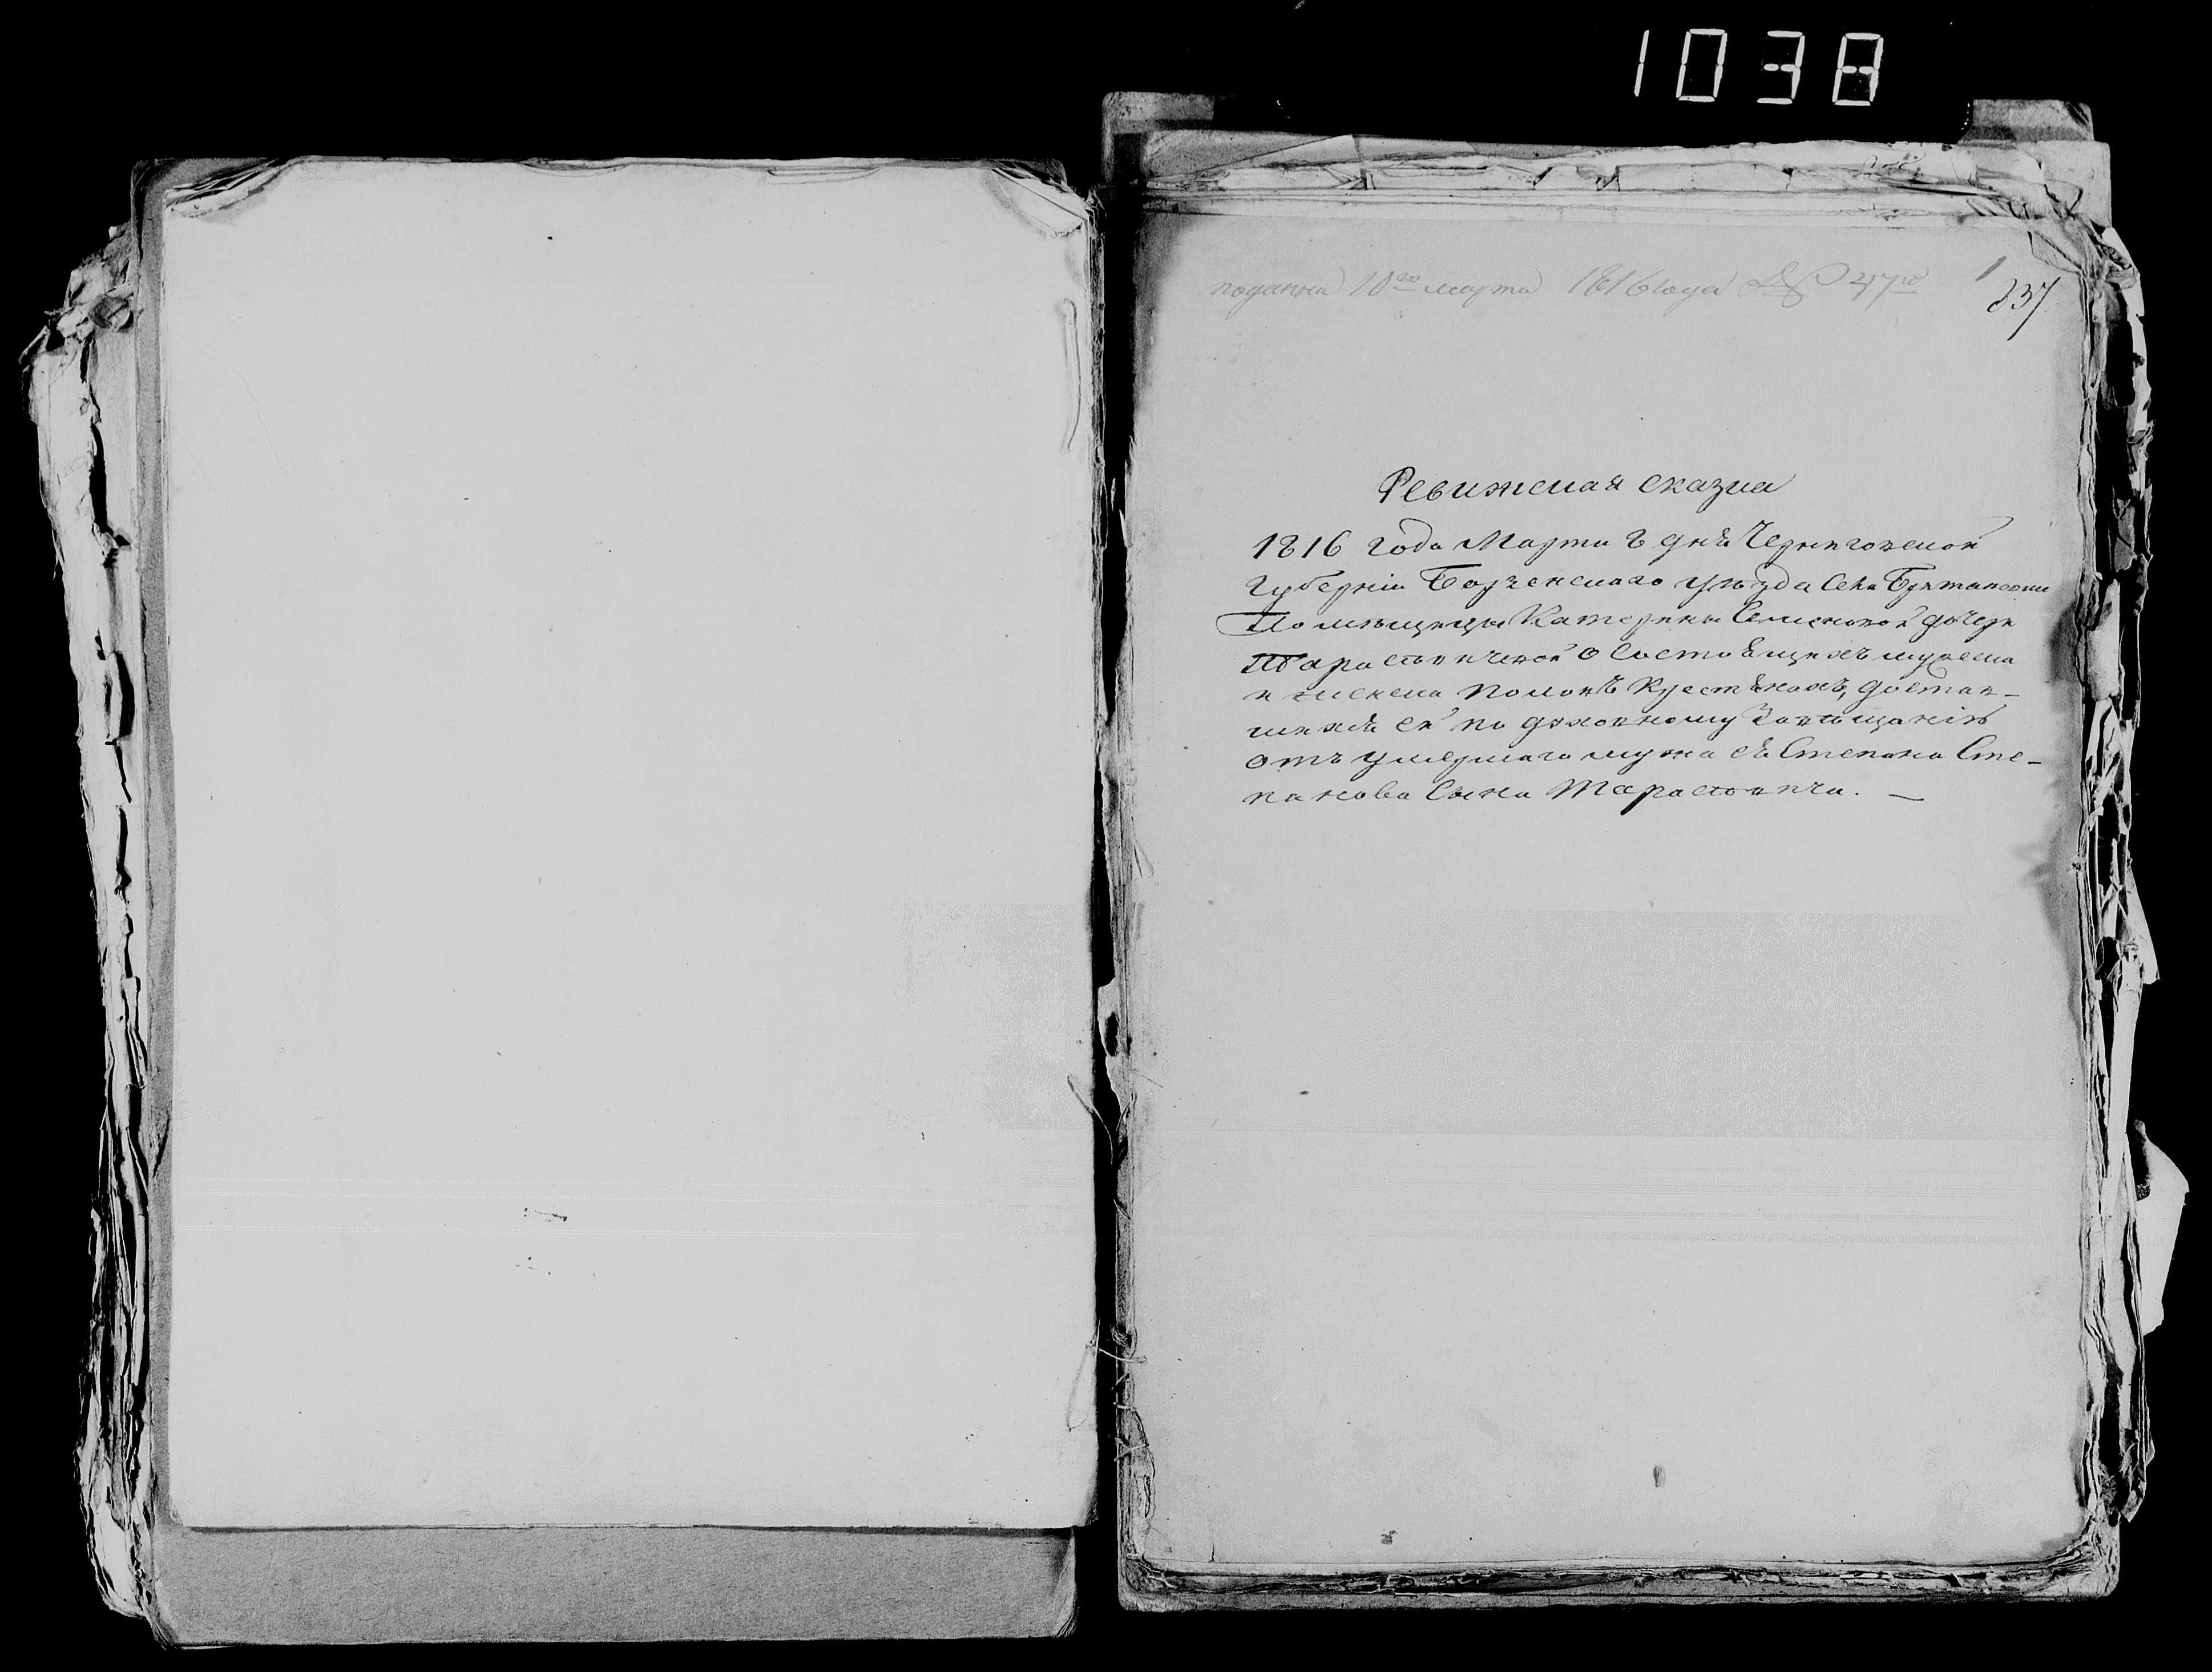 1038
подана 10го марта 1816 года № 47го
1
837
Ревижская сказка
1816 года Марта 8 дня Черниговской
Губерніи Борзенскаго уезда Села Британовки
Помѣщицы Катерины Семеновой дочери
Тарасевичевой о Состоящихъ мужеска
и женска половъ Крестянахъ, достав-
шихся ей по духовному Завѣщанію
отъ умершаго мужа ея Степана Сте-
панова Сына Тарасевича. —